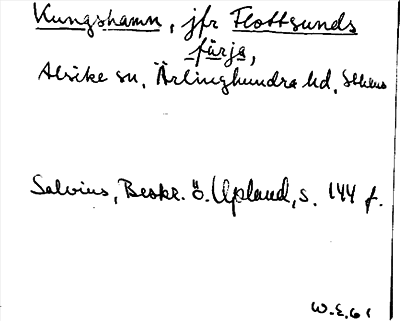 Kungshamn, jfr Flottsunds
färja,
Alsike sn, Ärlinghundra hd, Sthlms
Salvius, Beskr. ö. Upland, s. 144 f.
W.E. 61